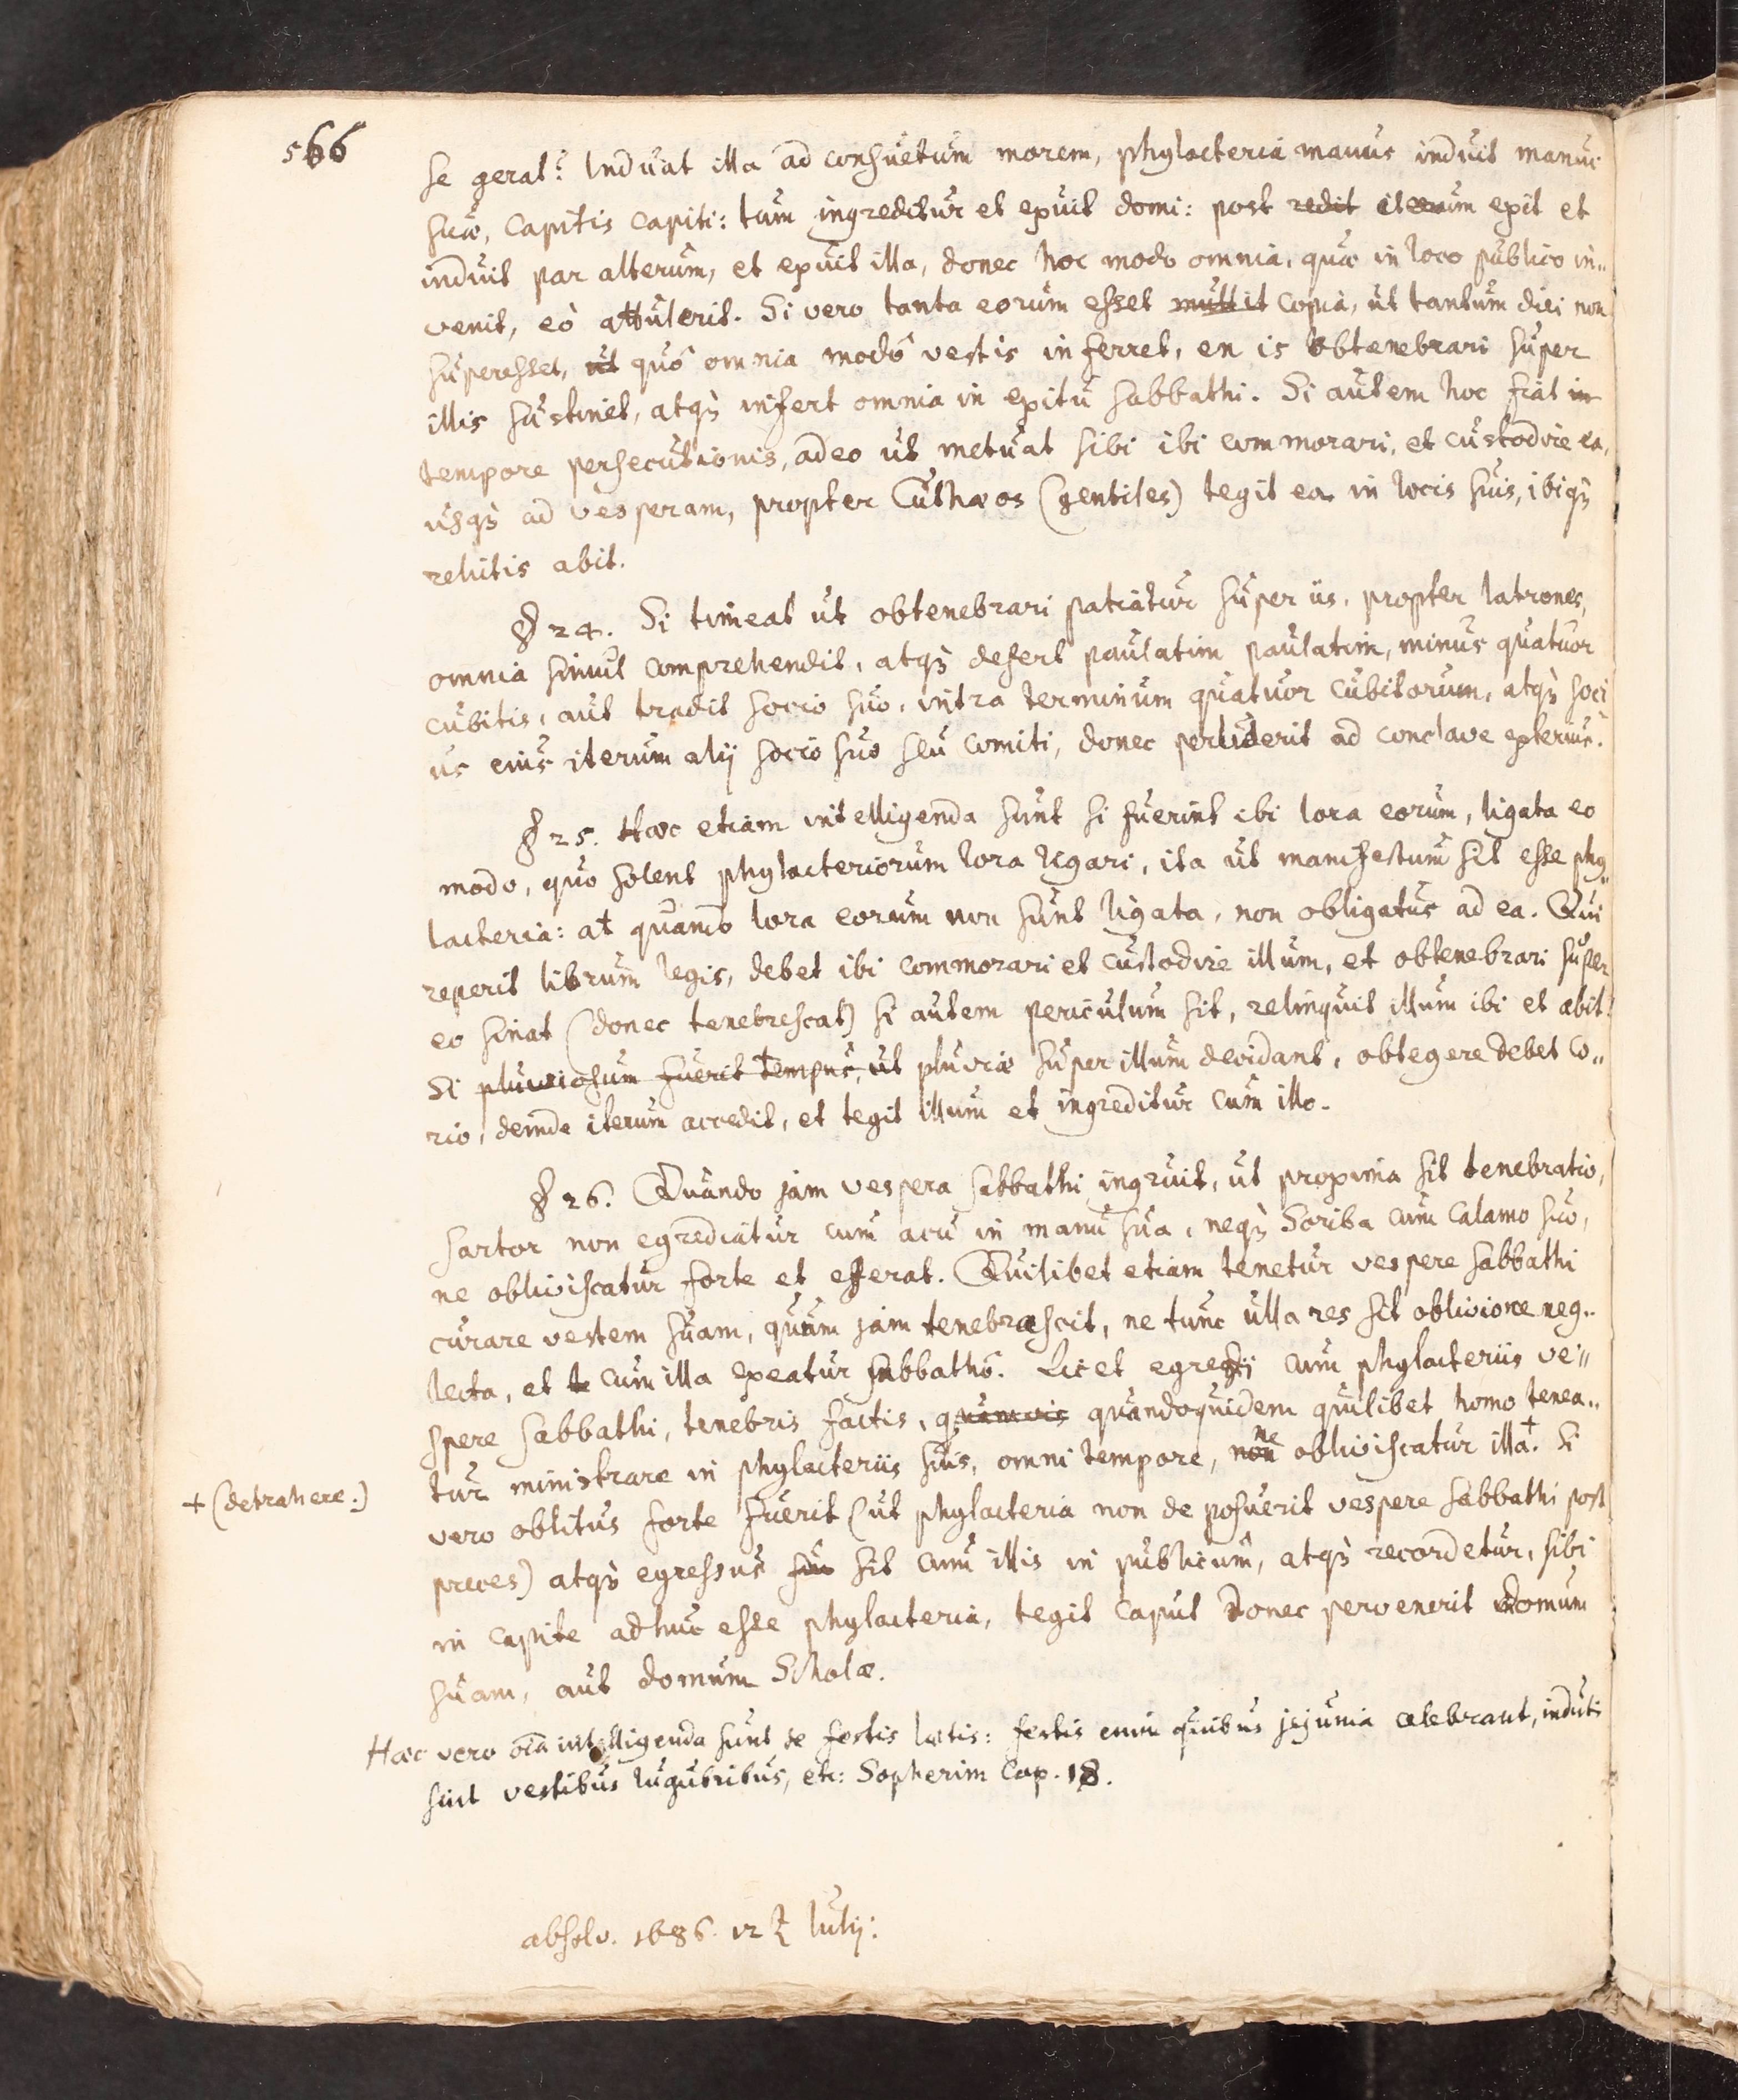 566
se gerat? Induat illa ad consuetum morem, phylacteria manus induit manui
suæ, capitis capiti: tum ingreditur et exuit domi: post redit iterum exit et
induit par alterum, et exuit illa, donec hoc modo omnia, quæ in loco publico in„
venit, eò attulerit. Si vero tanta eorum esset copia, ut tantum diei non
superesset, ut quô omnia modô vestis inferret, en is obtenebrari super
illis sustinet, atqȝ infert omnia in exitu sabbathi. Si autem hoc fiat in
tempore persecutionis, adeo ut metuat sibi ibi commorari, et custodire ea,
usqȝ ad vesperam, propter Cuthæos (gentiles) tegit ea in locis suis, ibiqȝ
relictis abit.
§ 24. Si timeat ut obtenebrari patiatur super iis, propter latrones,
omnia simul comprehendit, atqȝ defert paulatim paulatim, minus quatuor
cubitis, aut tradit socio suo, intra terminum quatuor cubitorum, atqȝ soci
us eius iterum alij socio suo seu comiti, donec ad conclave exterius.
§ 25. Hæc etiam intelligenda sunt si fuerint ibi lora eorum, ligata eo
modo, quo solent phylacteriorum lora ligari, ita ut manifestum sit esse phy„
lacteria: at quando lora eorum non sunt ligata, non obligatus ad ea. Qui
reperit librum legis, debet ibi commorari et custodire illum, et obtenebrari super
eo sinat (donec tenebrescat) si autem periculum sit, relinquit illum ibi et abit.
Si pluviosum fuerit tempus, ut pluviæ super illum decidant, obtegere debet co„
rio, deinde iterum accedit, et tegit illum et ingreditur cum illo.
§ 26. Quando jam vespera sabbathi ingruit, ut proxima sit tenebratio,
sartor non egrediatur cum acu in manu sua, neqȝ Scriba cum calamo suo,
ne obliviscatur forte et efferat. Quilibet etiam tenetur vespere sabbathi
curare vestem suam, quum jam tenebrascit, ne tunc ulla res sit oblivione neg„
lecta, et te cum illa exeatur sabbathô. Licet egredi cum phylacteriis ve„
spere sabbathi, tenebris factis, quamvis quandoquidem quilibet homo tenea„
tur ministrare in phylacteriis suis, omni tempore, non ne obliviscatur illa.+ Si
+ (detrahere.)
vero oblitus forte fuerit (ut phylacteria non deposuerit vespere sabbathi post
preces) atqȝ egressus sit cum illis in publicum, atqȝ recordetur, sibi
in capite adhuc esse phylacteria, tegit caput donec pervenerit domum
suam, aut domum Scholæ.
Hæc vero oīa intelligenda sunt de festis lætis: festis enim quibus jejunia celebrant, induti
sint vestibus lugubribus, etc: Sopherim Cap. 18.
absolv. 1686. 12 Iulij: